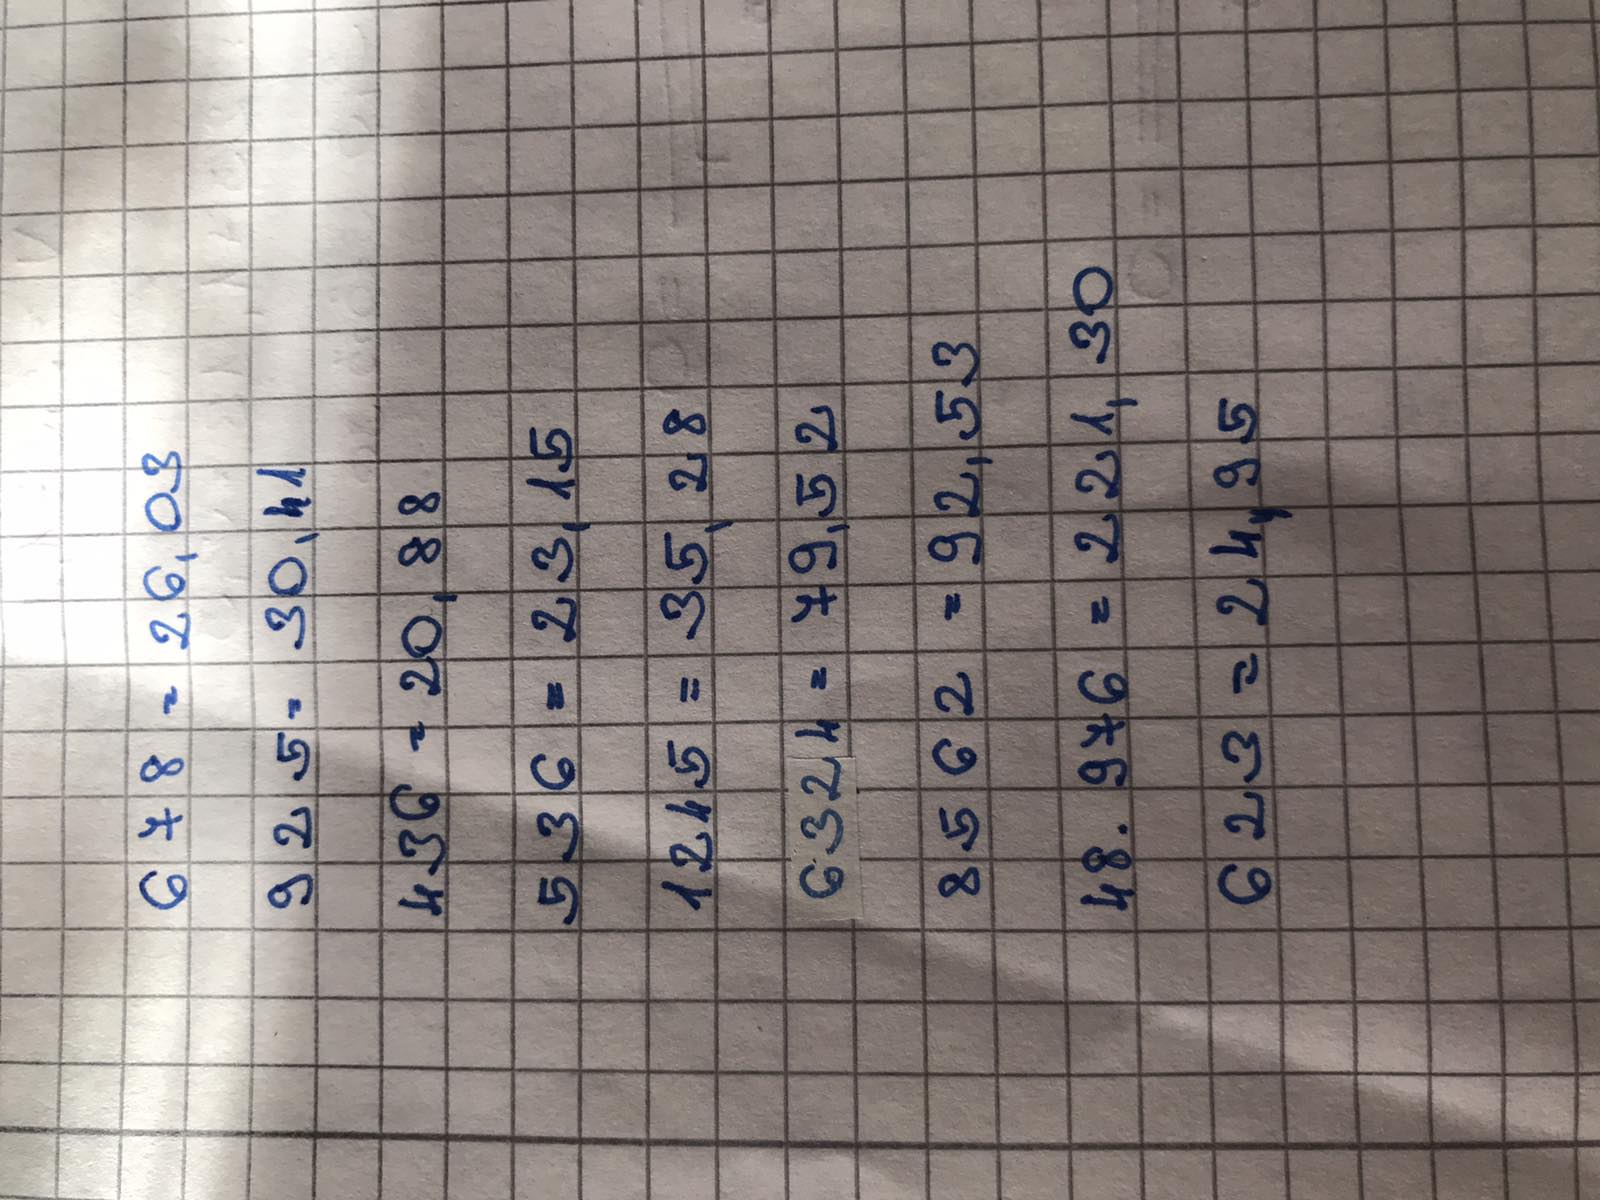 678 = 26,03
925 = 30,41
436 = 20,88
536 = 23,15
1245 = 35,28
6324 = 79,52
8562 = 92,53
48.976 = 221,30
623 = 24,95